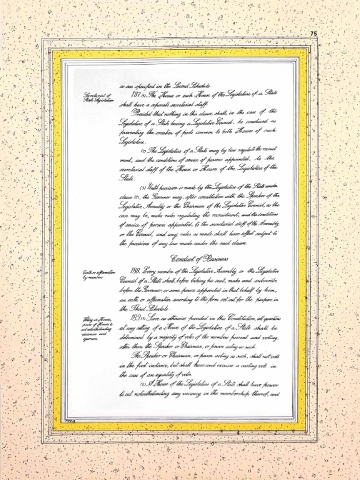 75
as are specified in the Second Schedule.
Secretariat of
State Legislature.
187. (1) The House or each House of the Legislature of a State
shall have a separate secretarial staff:
Provided that nothing in this clause shall, in the case of the
Legislature of a State having a Legislative Council, be construed as
preventing the creation of posts common to both Houses of such
Legislature.
(2) The Legislature of a State may by law regulate the recruit-
ment, and the conditions of service of persons appointed, to the
secretarial staff of the House or Houses of the Legislature of the
State.
(3) Until provision is made by the Legislature of the State under
clause (2), the Governor may, after consultation with the Speaker of the
Legislative Assembly or the Chairman of the Legislative Council, as the
case may be, make rules regulating the recruitment, and the conditions
of service of persons appointed, to the secretarial staff of the Assembly
or the Council, and any rules so made shall have effect subject to
the provisions of any law made under the said clause.
Conduct of Business
Oath or affirmation
by members.
188. Every member of the Legislative Assembly or the Legislative
Council of a State shall, before taking his seat, make and subscribe
before the Governor, or some person appointed in that behalf by him,
an oath or affirmation according to the form set out for the purpose in
the Third Schedule.
Voting in Houses,
power of Houses to
act notwithstanding
vacancies and
quorum.
189. (1) Save as otherwise provided in this Constitution, all questions
at any sitting of a House of the Legislature of a State shall be
determined by a majority of votes of the members present and voting,
other than the Speaker or Chairman, or person acting as such.
The Speaker or Chairman, or person acting as such, shall not vote
in the first instance, but shall have and exercise a casting vote in
the case of an equality of votes.
(2) A House of the Legislature of a State shall have power
to act notwithstanding any vacancy in the membership thereof, and